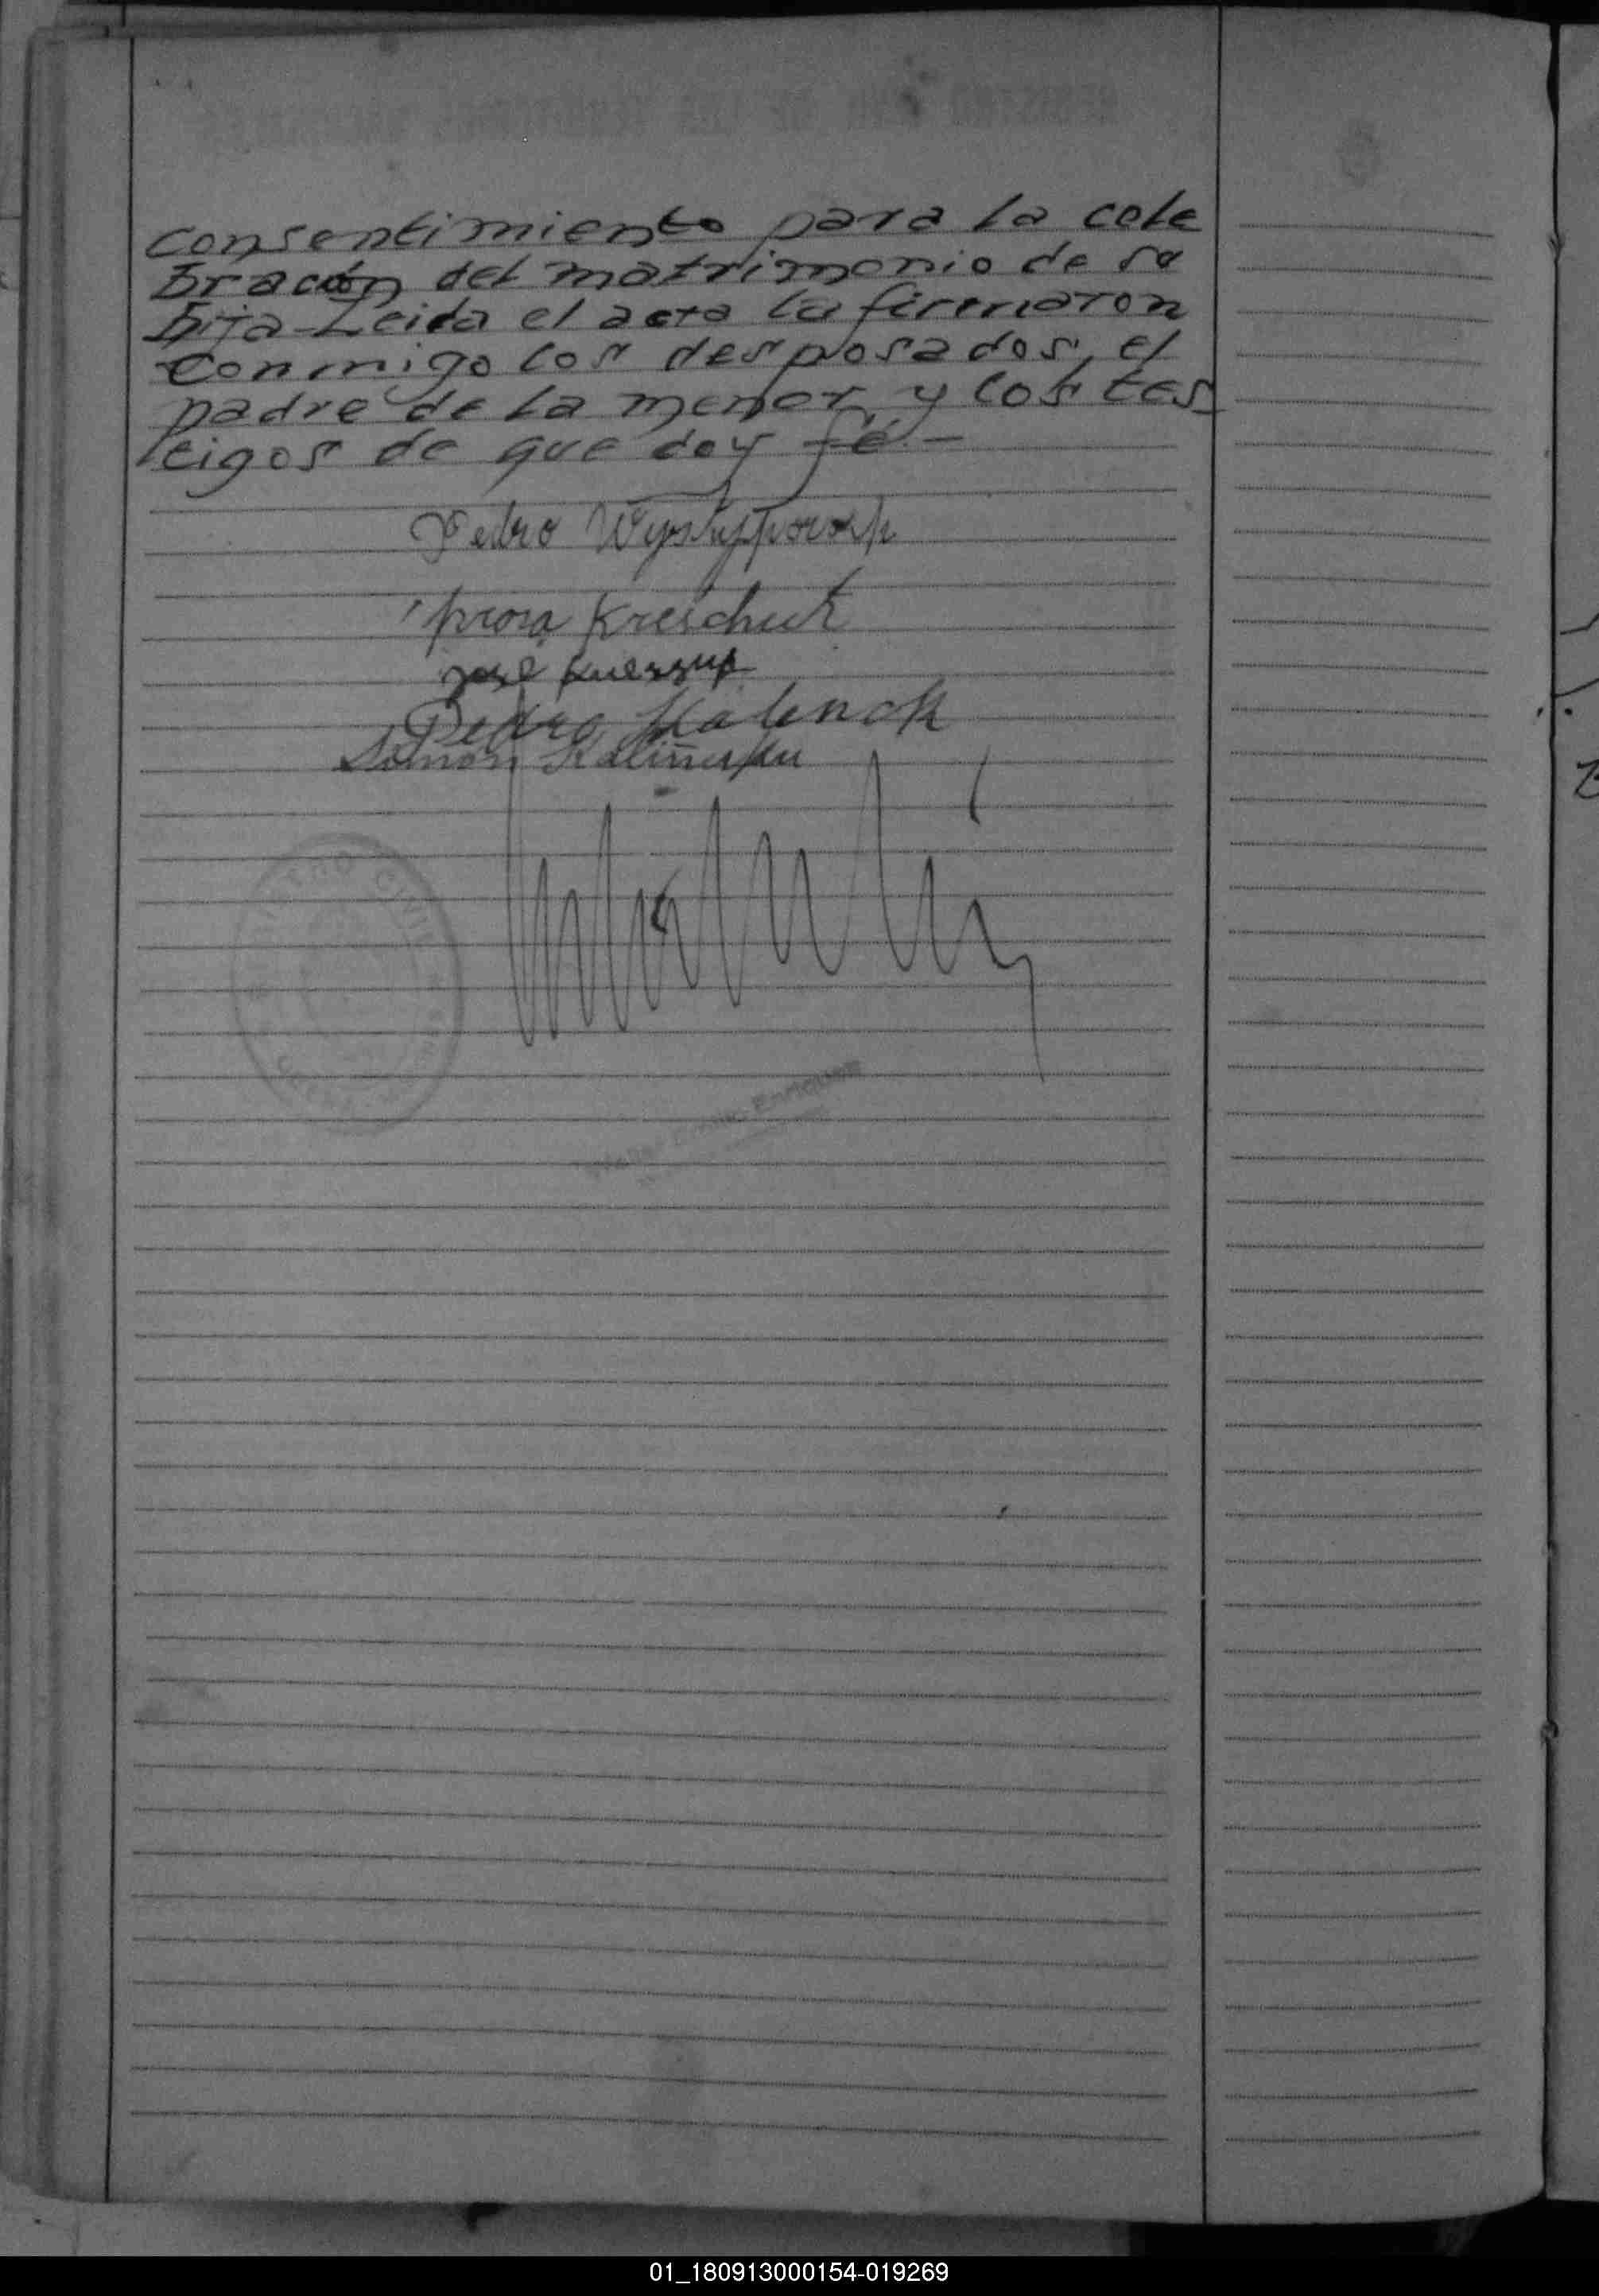 consentimiento para la cele
bración del matrimonio de su
hija - Leida el acta la firmaron
conmigo los desposados, el
padre de la menor y los tes
tigos de que doy fé.-
Pedro
Kreschuk
José
Pedro
Simon
REGISTRO CIVIL
Enriquez
01_180913000154-019269